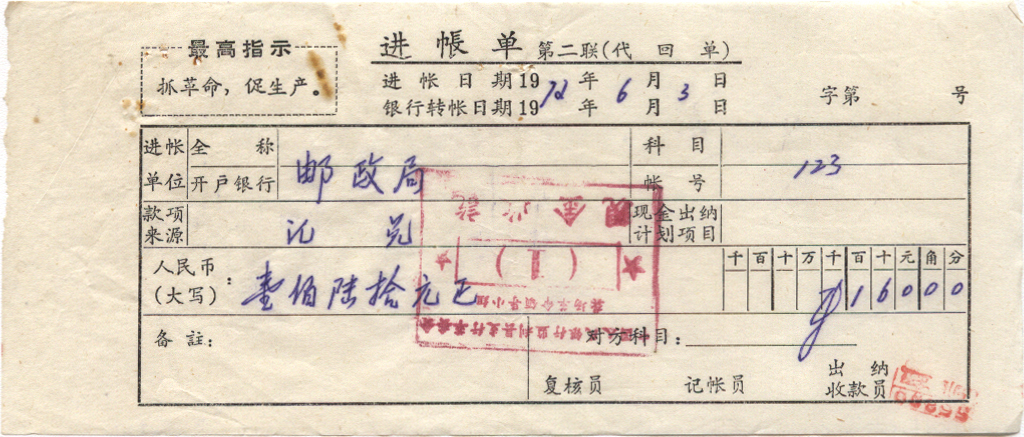 最高指示
抓革命，促生产。
进帐单 第二联(代回单)
进帐日期1972年6月3日
银行转帐日期19 年 月 日
字第 号
进帐单位 全称 邮政局 科目
开户银行 帐号 123
款项来源 汇兑 现金出纳计划项目
人民币(大写)： 壹佰陆拾元正 千百十万千百十元角分 ¥16000
备註： 对方科目：
复核员 记帐员 出纳收款员
现金收讫
(1)